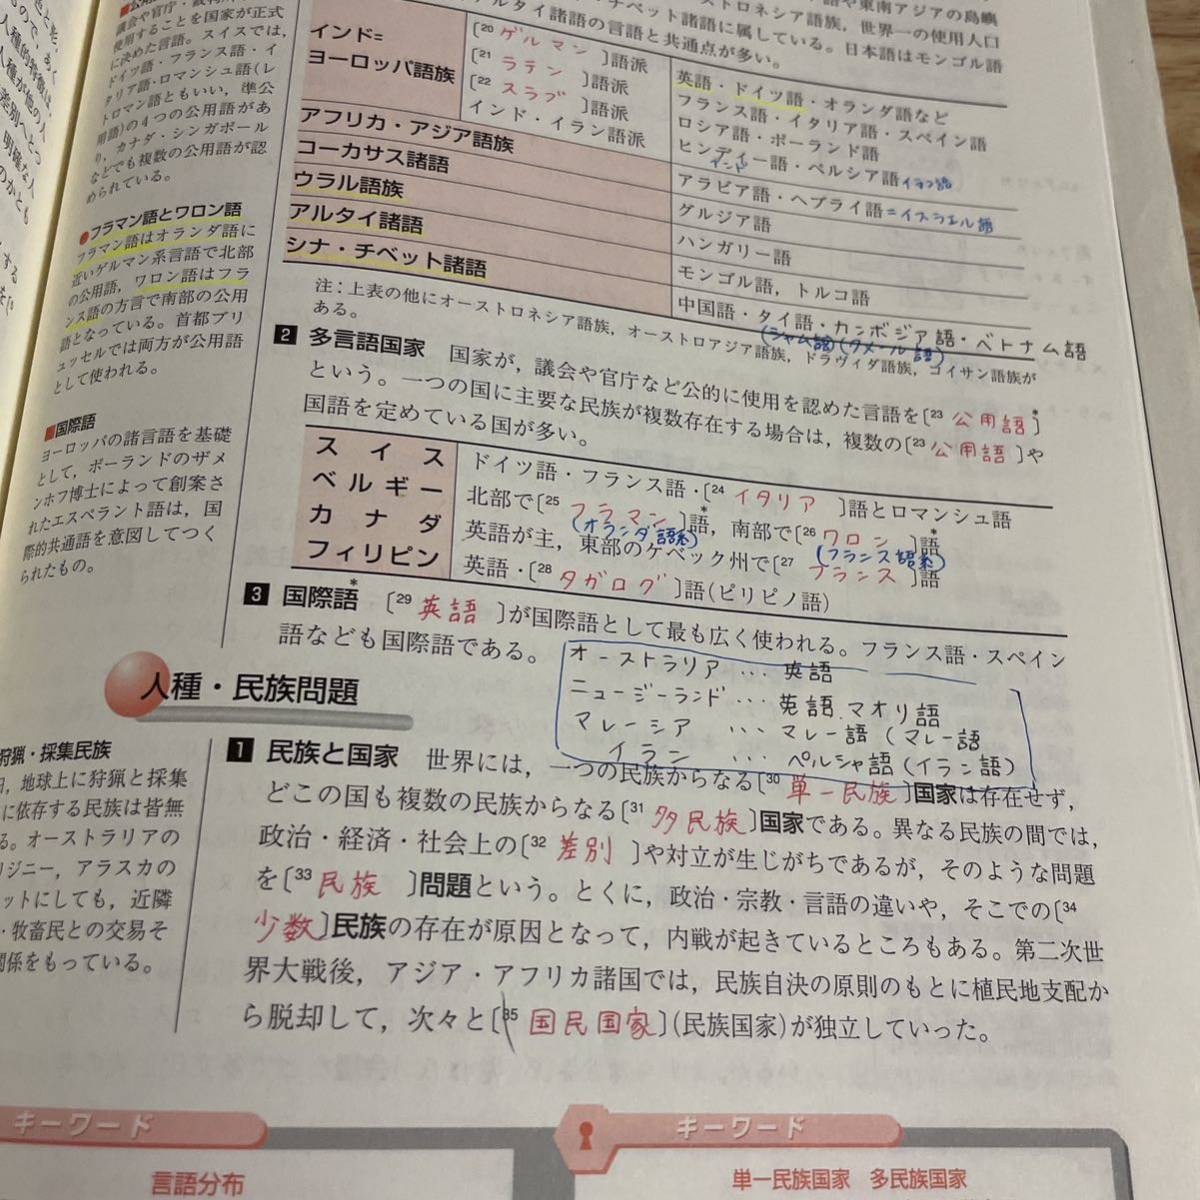 議会や官庁・
使用することを国家が正式
に決めた言語。スイスでは,
ドイツ語・フランス語・イ
タリア語・ロマンシュ語(レ
トロマン語ともいい, 準公
用語)の4つの公用語があ
り, カナダ・シンガポール
などでも複数の公用語が認
められている。
●フラマン語とワロン語
フラマン語はオランダ語に
近いゲルマン系言語で北部
の公用語, ワロン語はフラ
ンス語の方言で南部の公用
語となっている。首都ブリ
ュッセルでは両方が公用語
として使われる。
■国際語
ヨーロッパの諸言語を基礎
として, ポーランドのザメ
ンホフ博士によって創案さ
れたエスペラント語は, 国
際的共通語を意図してつく
られたもの。
狩猟・採集民族
, 地球上に狩猟と採集
に依存する民族は皆無
る。オーストラリアの
ジニー, アラスカの
ットにしても, 近隣
・牧畜民との交易そ
関係をもっている。
や東南アジアの島嶼
ストロネシア語族, 世界一の使用人口
・チベット諸語に属している。日本語はモンゴル語
アルタイ諸語の言語と共通点が多い。
インド=
ヨーロッパ語族
[20 ゲルマン]語派
[21 ラテン]語派
[22 スラブ]語派
インド・イラン語派
英語・ドイツ語・オランダ語など
フランス語・イタリア語・スペイン語
ロシア語・ポーランド語
ヒンディー語・ペルシア語 イラン語
インド
アフリカ・アジア語族
アラビア語・ヘブライ語=イスラエル語
コーカサス諸語
グルジア語
ウラル語族
ハンガリー語
アルタイ諸語
モンゴル語, トルコ語
シナ・チベット諸語
中国語・タイ語・カンボジア語・ベトナム語
(シャム語)(クメール語)
注:上表の他にオーストロネシア語族, オーストロアジア語族, ドラヴィダ語族, コイサン語族が
ある。
2 多言語国家 国家が, 議会や官庁など公的に使用を認めた言語を[23 公用語*]
という。一つの国に主要な民族が複数存在する場合は, 複数の[23 公用語]や
国語を定めている国が多い。
スイス ドイツ語・フランス語・[24 イタリア]語とロマンシュ語
ベルギー 北部で[25 フラマン]語*, 南部で[26 ワロン]語*
(オランダ語系) (フランス語系)
カナダ 英語が主, 東部のケベック州で[27 フランス]語
フィリピン 英語・[28 タガログ]語(ピリピノ語)
3 国際語* [29 英語]が国際語として最も広く使われる。フランス語・スペイン
語なども国際語である。
オーストラリア … 英語
ニュージーランド … 英語、マオリ語
マレーシア … マレー語 (マレー語
イラン … ペルシャ語(イラン語)
人種・民族問題
1 民族と国家 世界には, 一つの民族からなる[30 単一民族]国家は存在せず,
どこの国も複数の民族からなる[31 多民族]国家である。異なる民族の間では,
政治・経済・社会上の[32 差別]や対立が生じがちであるが, そのような問題
を[33 民族]問題という。とくに, 政治・宗教・言語の違いや, そこでの[34
少数]民族の存在が原因となって, 内戦が起きているところもある。第二次世
界大戦後, アジア・アフリカ諸国では, 民族自決の原則のもとに植民地支配か
ら脱却して, 次々と[35 国民国家](民族国家)が独立していった。
キーワード
言語分布
キーワード
単一民族国家 多民族国家